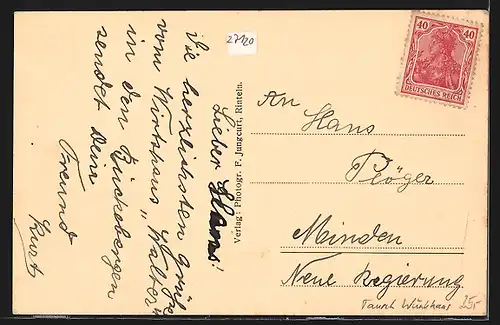 27120
Lieber Hans!
Die herzlichsten Grüße
vom Wirtshaus "Walter"
in den Bückebergen
sendet Deine
Freund
Kurt
Verlag: Photogr. F. Jungcurt, Rinteln.
40 40
DEUTSCHES REICH
An Hans
Plöger
Minden
Neue Regierung
Tausch Wirtshaus 25,-